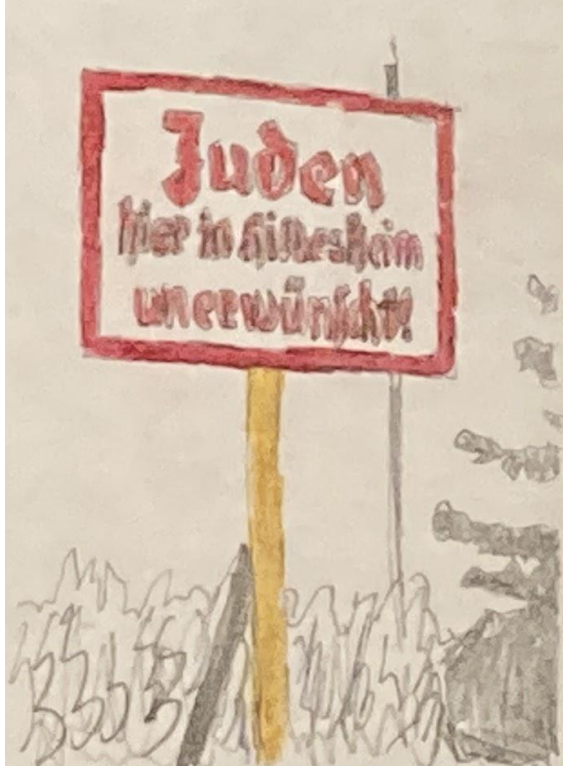 Juden
hier in Hildesheim
unerwünscht!